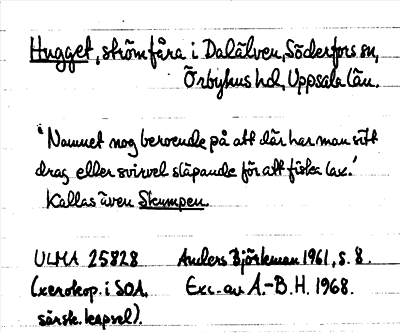 Hugget, strömfåra i Dalälven, Söderfors sn,
Örbyhus hd, Uppsala län.
"Namnet nog beroende på att där har man sitt
drag eller svirvel släpande för att fiska lax."
Kallas även Skumpen.
ULMA 25828 Anders Björkman 1961, s. 8.
(xerokop. i SOA, Exc. av A.-B.H. 1968.
särsk. kapsel).